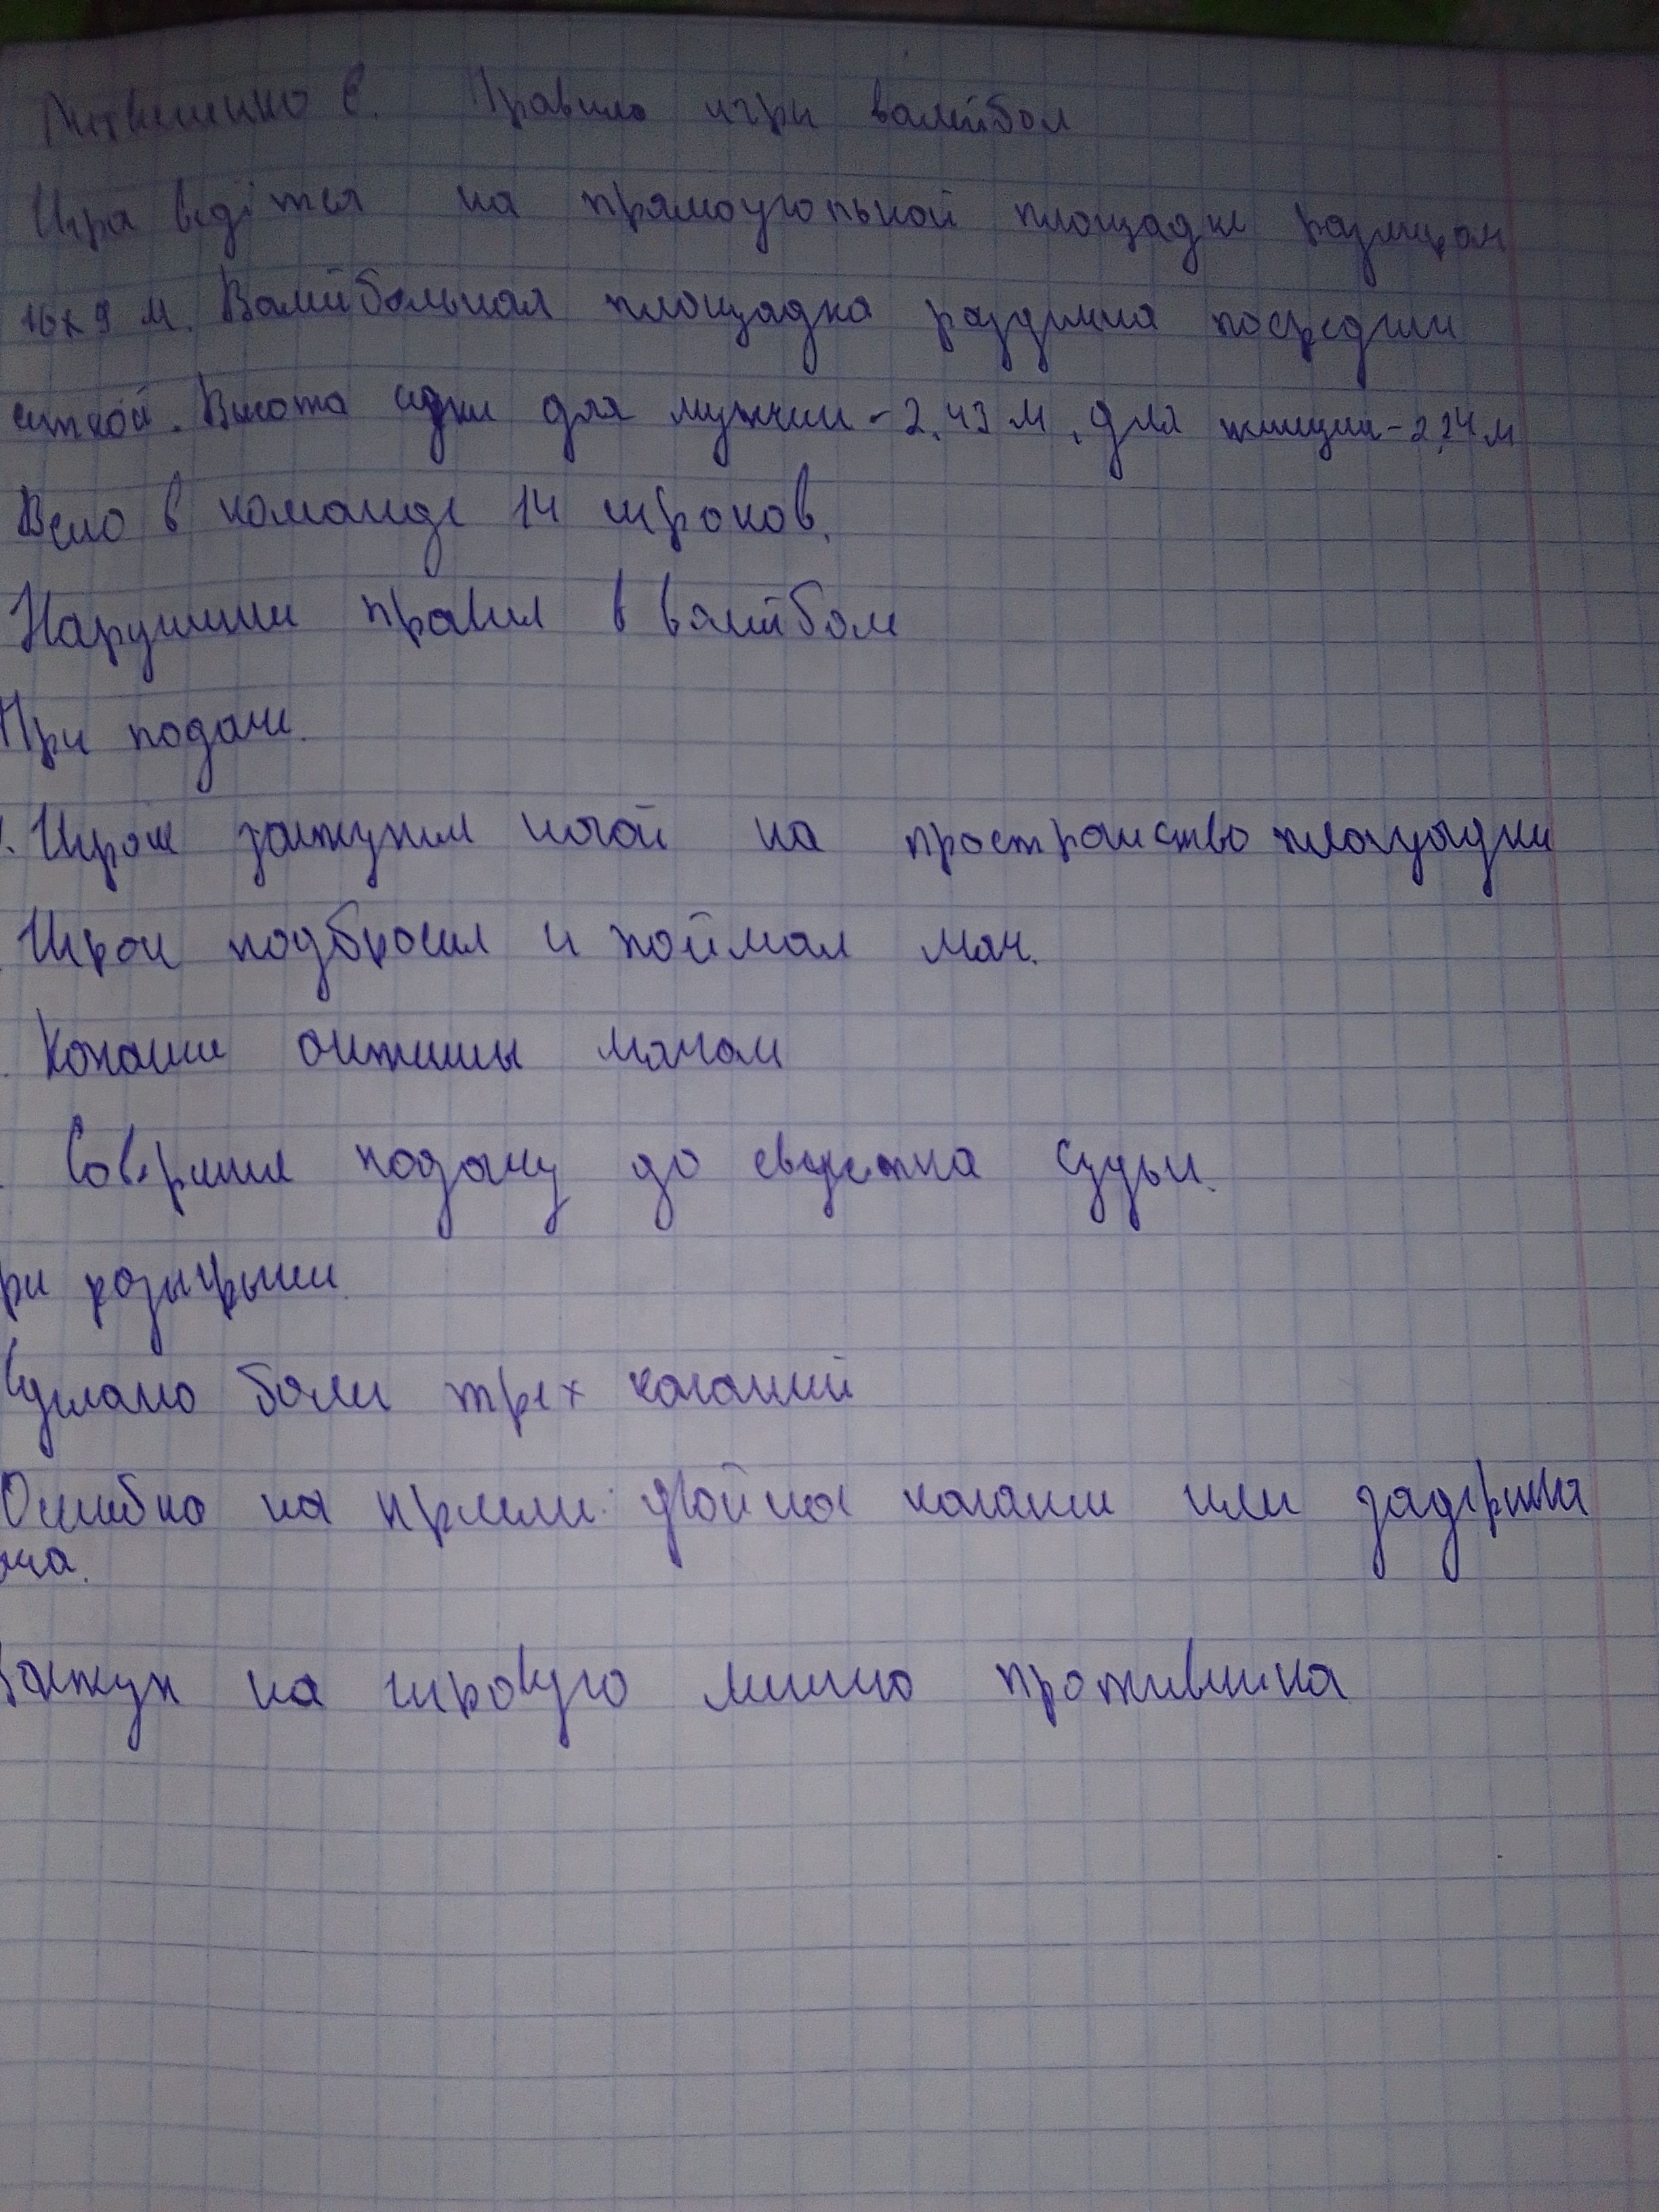 Литвененко Е. Правила игри валейбол
Игра ведётся на прямоугольной площадке размером
16х9 м. Валейбольная площадка разделена посредине
сеткой. Высота сетки для мужчин - 2,43 м, для женщин - 2,24 м
Всего в команде 14 игроков.
Нарушение правил в валейболе
При подаче.
Игрок заступил ногой на пространство площадки
Игрок подбросил и поймал мяч.
Касание антенны мячом
Совершил подачу до свистка судьи.
ри розыгрыше.
Сделано более трех касаний
Ошибка на приеме: двойное касание или задержка
яча.
Заступ на игровую линию противника